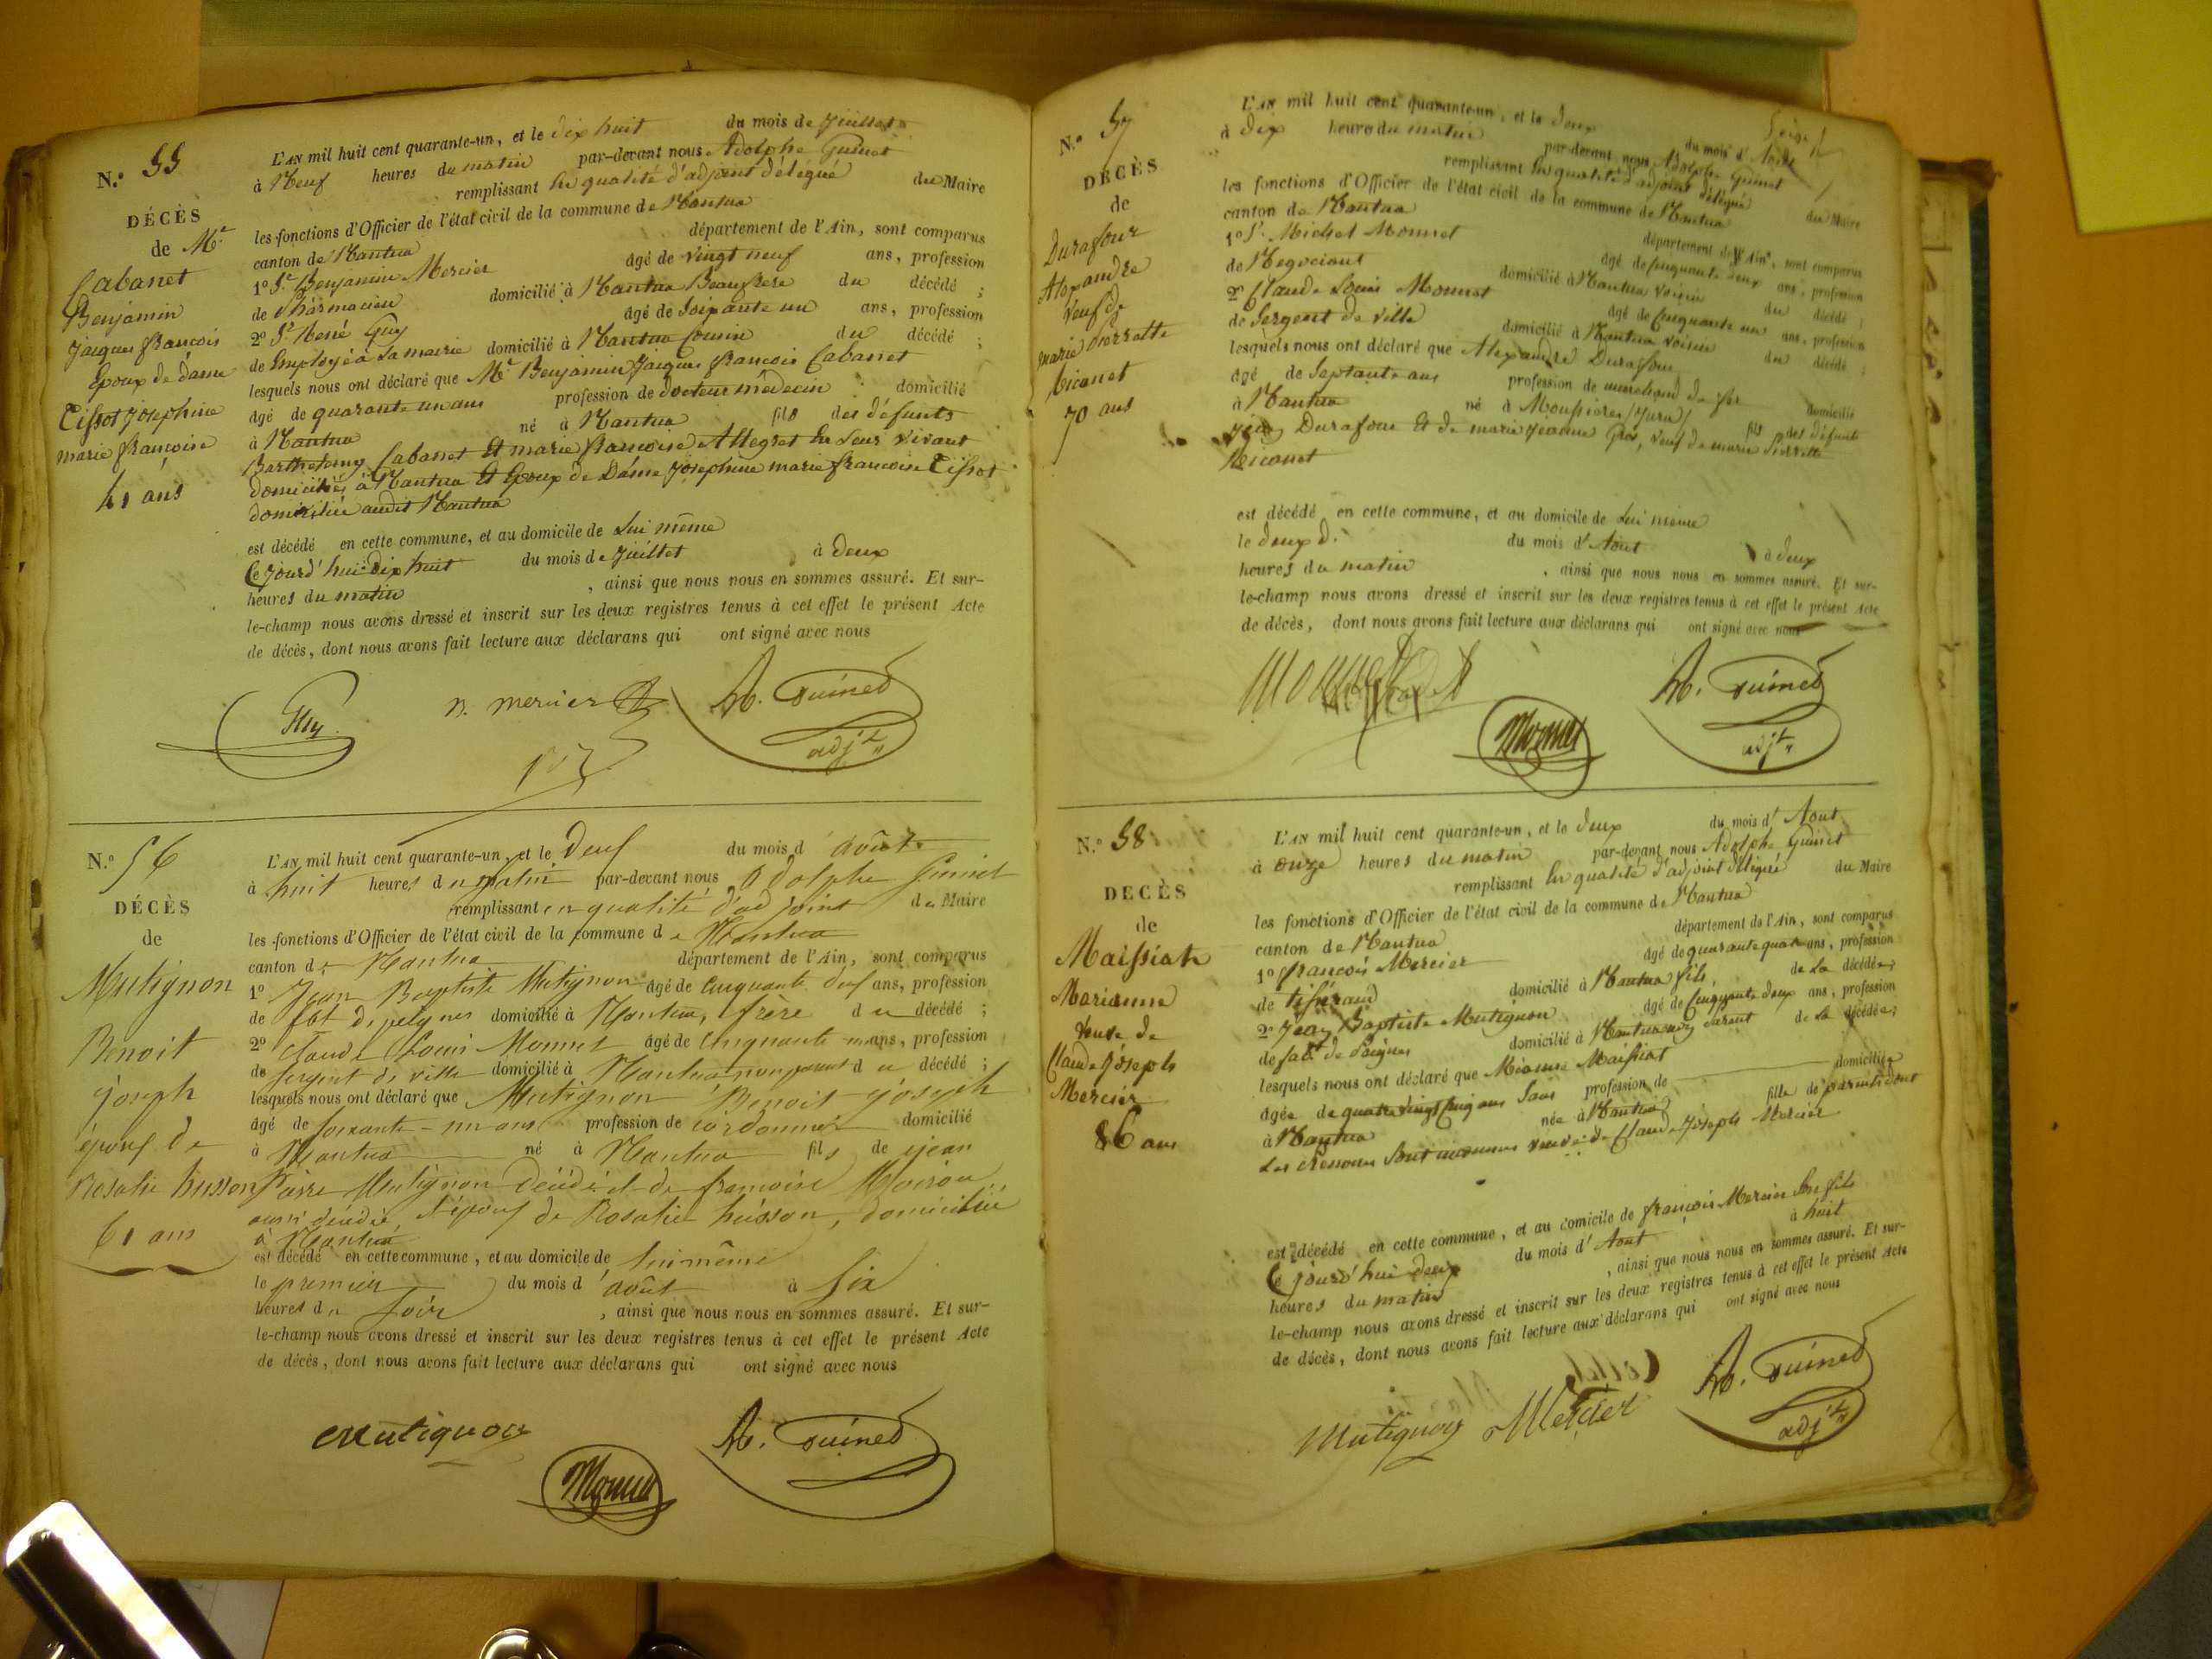 N.º 55
DÉCÈS
de Mr
Cabanet
Benjamin
Jacques françois
Epoux de dame
Tissot Josephine
marie françoise
41 ans
L'AN mil huit cent quarante-un, et le dix huit du mois de Juillet
à Neuf heures du matin par-devant nous Adolphe Guinet
remplissant En qualité d'adjoint délégué du Maire
les fonctions d'Officier de l'état civil de la commune de Nantua
canton de Nantua département de l'Ain, sont comparus
1º Sr Benjamin Mercier âgé de vingt neuf ans, profession
de Pharmacien domicilié à Nantua Beaufrere du décédé ;
2º Sr René Guy âgé de Soixante un ans, profession
de Employé à la mairie domicilié à Nantua Cousin du décédé ;
lesquels nous ont déclaré que Mr Benjamin Jacques françois Cabanet
âgé de quarante un ans profession de docteur médecin domicilié
à Nantua né à Nantua fils des défunts
Barthelemy Cabanet Et marie françoise Allegret En Leur vivant
domiciliés à Nantua Et Epoux de Dame Josephine marie francoise Tissot
domiciliée audit Nantua
est décédé en cette commune, et au domicile de Lui même
Ce jourd'hui dix huit du mois de Juillet à deux
heures du matin , ainsi que nous nous en sommes assuré. Et sur-
le-champ nous avons dressé et inscrit sur les deux registres tenus à cet effet le présent Acte
de décès, dont nous avons fait lecture aux déclarans qui ont signé avec nous
Guy B. mercier A. Guinet
adjt
N.º 56
DÉCÈS
de
Mutignon
Benoit
joseph
époux de
Rosalie husson
61 ans
L'AN mil huit cent quarante-un, et le Deux du mois d'août
à huit heures du matin par-devant nous Adolphe Guinet
remplissant en qualité d'adjoint du Maire
les fonctions d'Officier de l'état civil de la commune de Nantua
canton de Nantua département de l'Ain, sont comparus
1º Jean Baptiste Mutignon âgé de Cinquante deux ans, profession
de fbt de peignes domicilié à Nantua, frère du décédé ;
2º Claude Louis Monnet âgé de Cinquante un ans, profession
de sergent de ville domicilié à Nantua non parent du décédé ;
lesquels nous ont déclaré que Mutignon Benoit joseph
âgé de soixante-un ans profession de cordonnier domicilié
à Nantua né à Nantua fils de jean
Pierre Mutignon décédé et de francoise
aussi décédée, et époux de Rosalie husson, domiciliée
à Nantua
est décédé en cette commune, et au domicile de lui même
le premier du mois d'août à Six
heures du Soir , ainsi que nous nous en sommes assuré. Et sur-
le-champ nous avons dressé et inscrit sur les deux registres tenus à cet effet le présent Acte
de décès, dont nous avons fait lecture aux déclarans qui ont signé avec nous
Mutignon A. Guinet
Monnet
N.º 57
DÉCÈS
de
Durafour
Alexandre
Veuf de
marie Pierrette
Nicanet
70 ans
L'AN mil huit cent quarante-un, et le deux du mois d'Août
à dix heures du matin par-devant nous Adolphe Guinet
remplissant En qualité d'adjoint délégué du Maire
les fonctions d'Officier de l'état civil de la commune de Nantua
canton de Nantua département de l'Ain, sont comparus
1º Sr Michel Monnet âgé de cinquante deux ans, profession
de Negociant domicilié à Nantua voisin du décédé ;
2º Claude Louis Monnet âgé de Cinquante un ans, profession
de Sergent de ville domicilié à Nantua Voisin du décédé ;
lesquels nous ont déclaré que Alexandre Durafour
âgé de Septante ans profession de marchand de fer domicilié
à Nantua né à Moussieres (Jura) fils des défunts
Jean Durafour Et de marie Jeanne Gros, veuf de marie Pierrette
Nicanet
est décédé en cette commune, et au domicile de Lui même
le deux d. du mois d'Août à deux
heures du matin , ainsi que nous nous en sommes assuré. Et sur-
le-champ nous avons dressé et inscrit sur les deux registres tenus à cet effet le présent Acte
de décès, dont nous avons fait lecture aux déclarans qui ont signé avec nous
A. Guinet
Monnet adjt
N.º 58
DECÈS
de
Maissiat
Marianne
Veuve de
Claude Joseph
Mercier
86 ans
L'AN mil huit cent quarante-un, et le deux du mois d'Août
à onze heures du matin par-devant nous Adolphe Guinet
remplissant En qualité d'adjoint délégué du Maire
les fonctions d'Officier de l'état civil de la commune de Nantua
canton de Nantua département de l'Ain, sont comparus
1º françois Mercier âgé de quarante quatre ans, profession
de tisserand domicilié à Nantua fils, de la décédée ;
2º Jean Baptiste Mutignon âgé de Cinquante deux ans, profession
de fabt de Peignes domicilié à Nantua non parent de la décédée ;
lesquels nous ont déclaré que Marianne Maissiat
âgée de quatre vingt six ans Sans profession de domiciliée
à Nantua née à Nantua fille de parents dont
Les prenoms Sont inconnus veuve de Claude Joseph Mercier
est décédé en cette commune, et au domicile de françois Mercier Son fils
Ce jourd'hui deux du mois d'Aout à huit
heures du matin , ainsi que nous nous en sommes assuré. Et sur-
le-champ nous avons dressé et inscrit sur les deux registres tenus à cet effet le présent Acte
de décès, dont nous avons fait lecture aux déclarans qui ont signé avec nous
Mutignon Mercier A. Guinet
adjt